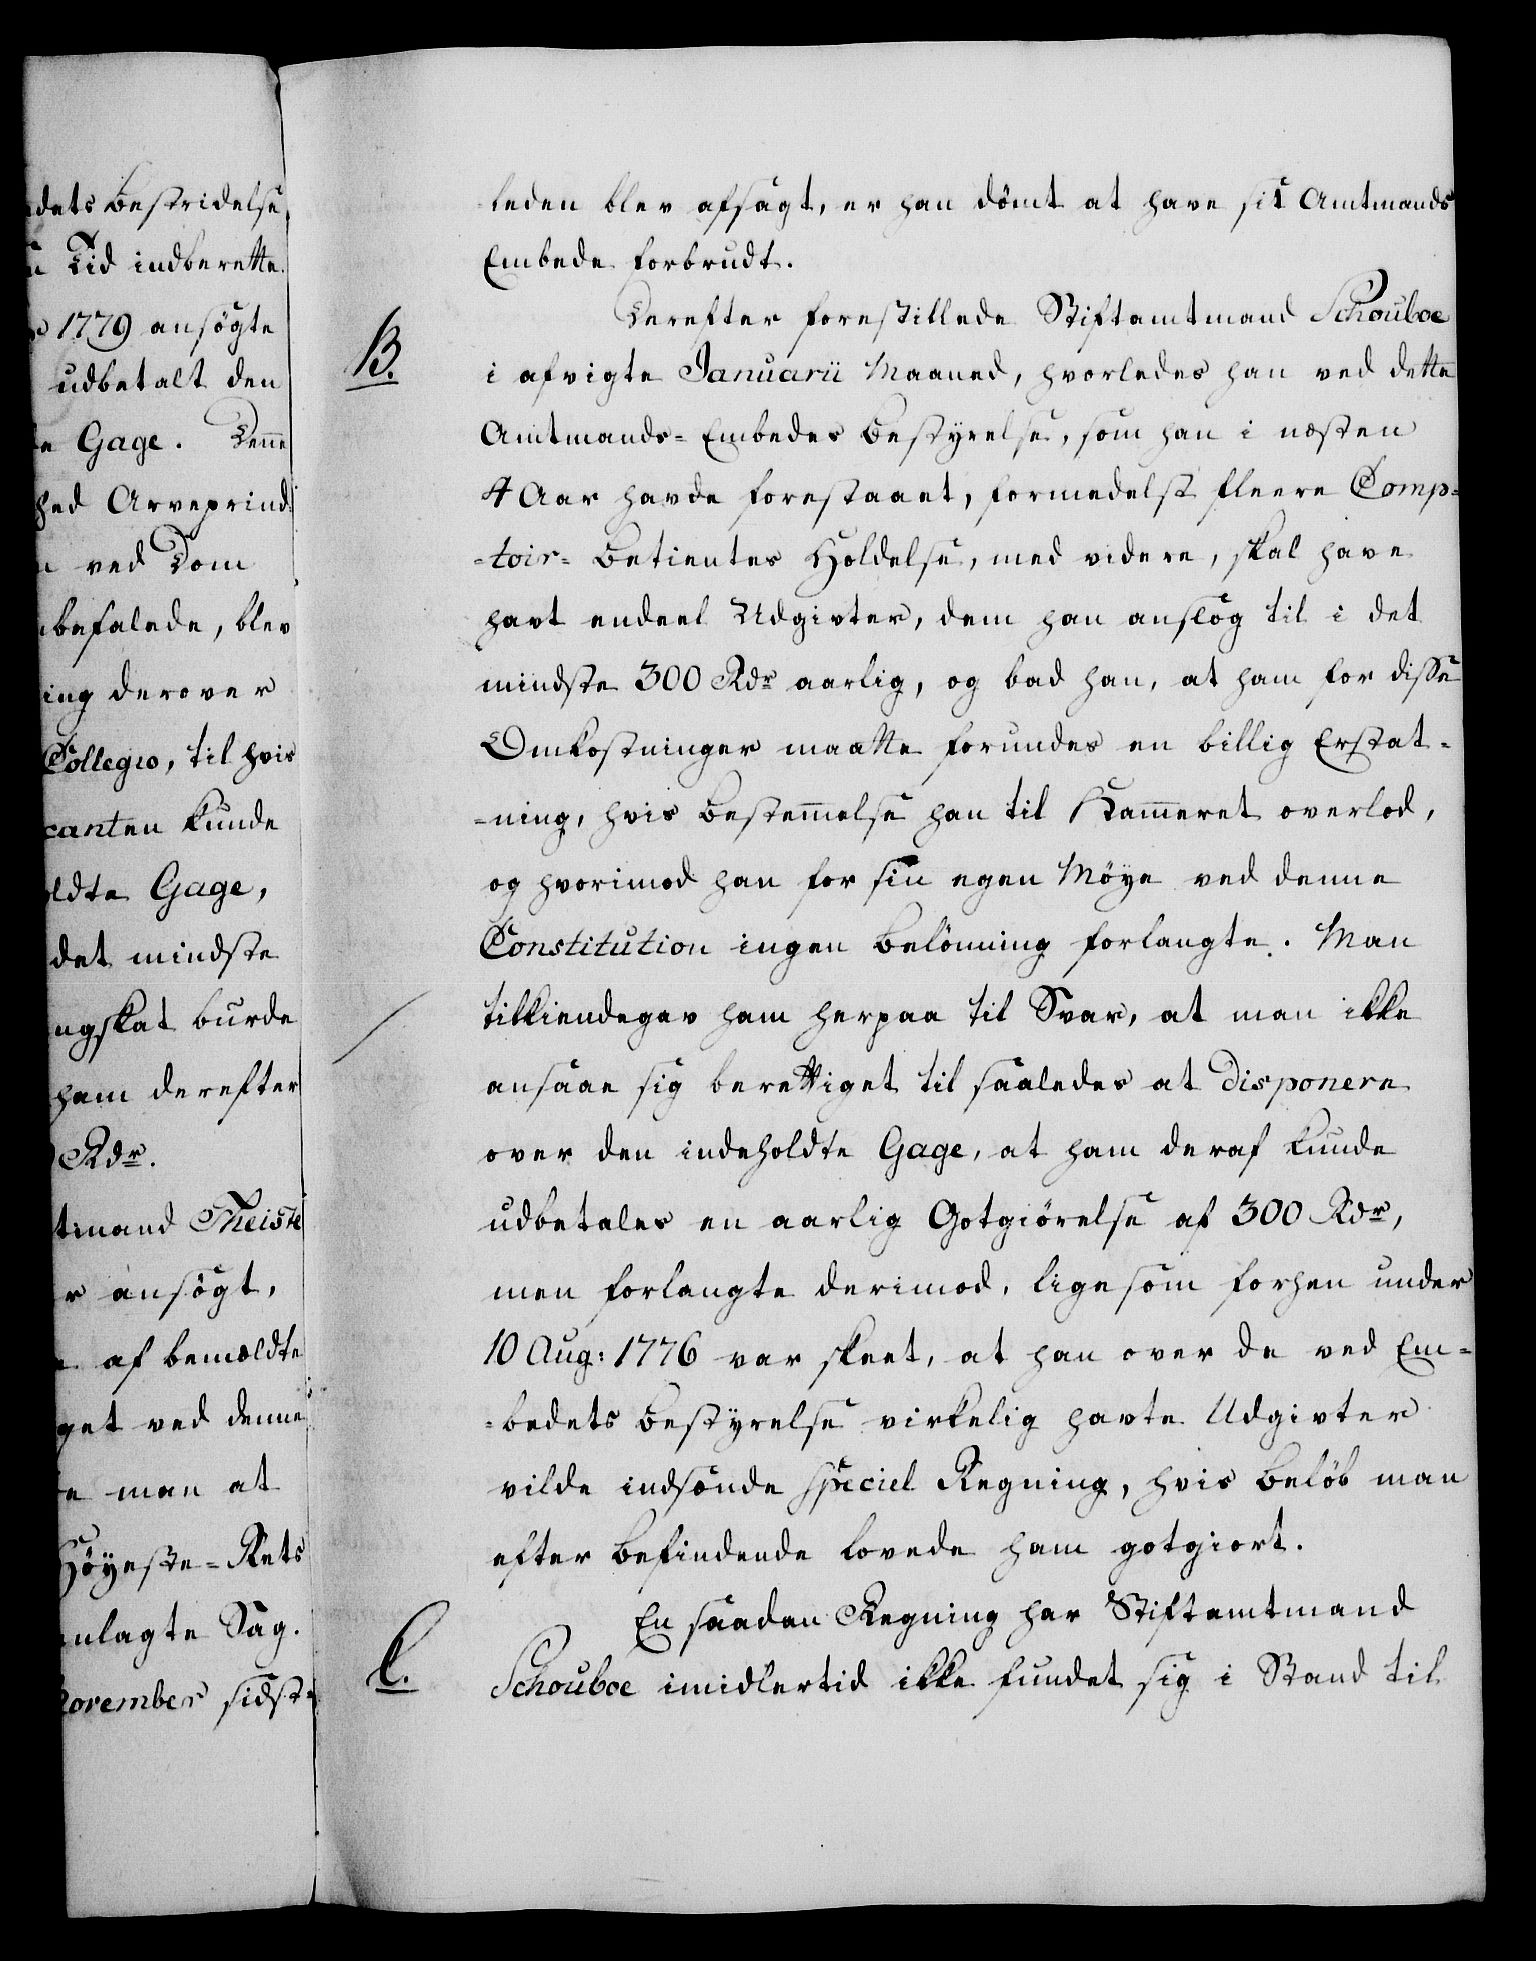 dets Bestridelse
Tid indberette
1779 ansögte
udbetalt den
Gage. Denne
hed Arveprind
ved Dom
befalede, blev
ing derover
Collegio, til hvis
canten kunde
oldte Gage,
det mindste
ngskat burde
ham derefter
Rdr.
tmand Theiste
ansögt,
af bemældte
get ved denne
man at
Höyeste-Rets
anlagte Sag.
November sidst-
leden blev afsagt, er han dömt at have sit Amtmands
Embede forbrudt.
B.
Derefter forestillede Stiftamtmand Schouboe
i afvigte Januarii Maaned, hvorledes han ved dette
Amtmands-Embedes Bestyrelse, som han i næsten
4 Aar havde forestaaet, formedelst fleere Comp-
-toir-Betientes Holdelse, med videre, skal have
havt endeel Udgivter, dem han anslog til i det
mindste 300 Rdr aarlig, og bad han, at ham for disse
Omkostninger maatte forundes en billig Erstat-
-ning, hvis Bestemmelse han til Kammeret overlod,
og hvorimod han for sin egen Möye ved denne
Constitution ingen Belönning forlangte. Man
tilkiendegav ham herpaa til Svar, at man ikke
ansaae sig berettiget til saaledes at disponere
over den indeholdte Gage, at ham deraf kunde
udbetales en aarlig Gotgiörelse af 300 Rdr,
men forlangte derimod, ligesom forhen under
10 Aug: 1776 var skeet, at han over de ved Em-
-bedets Bestyrelse virkelig havte Udgivter
vilde indsende speciel Regning, hvis Belöb man
efter Befindende lovede ham gotgiort.
En saadan Regning har Stiftamtmand
C.
Schouboe imidlertid ikke fundet sig i Stand til